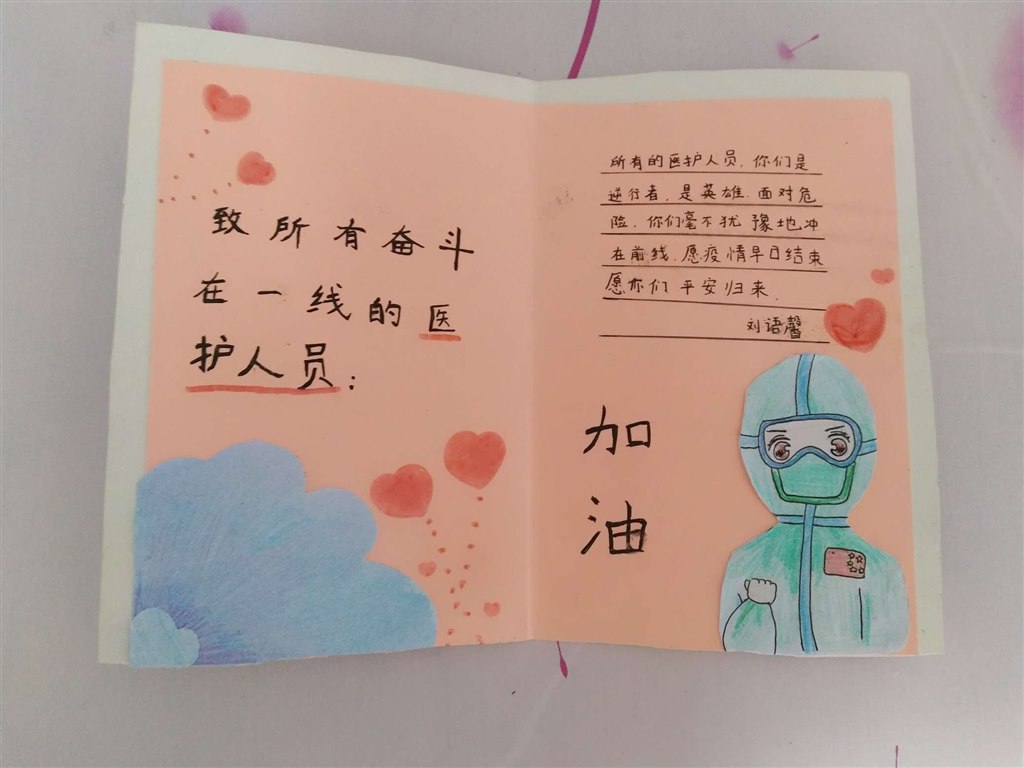 致所有奋斗
在一线的医
护人员：
所有的医护人员，你们是
逆行者，是英雄.面对危
险，你们毫不犹豫地冲
在前线.愿疫情早日结束
愿你们平安归来.
刘语馨
加
油